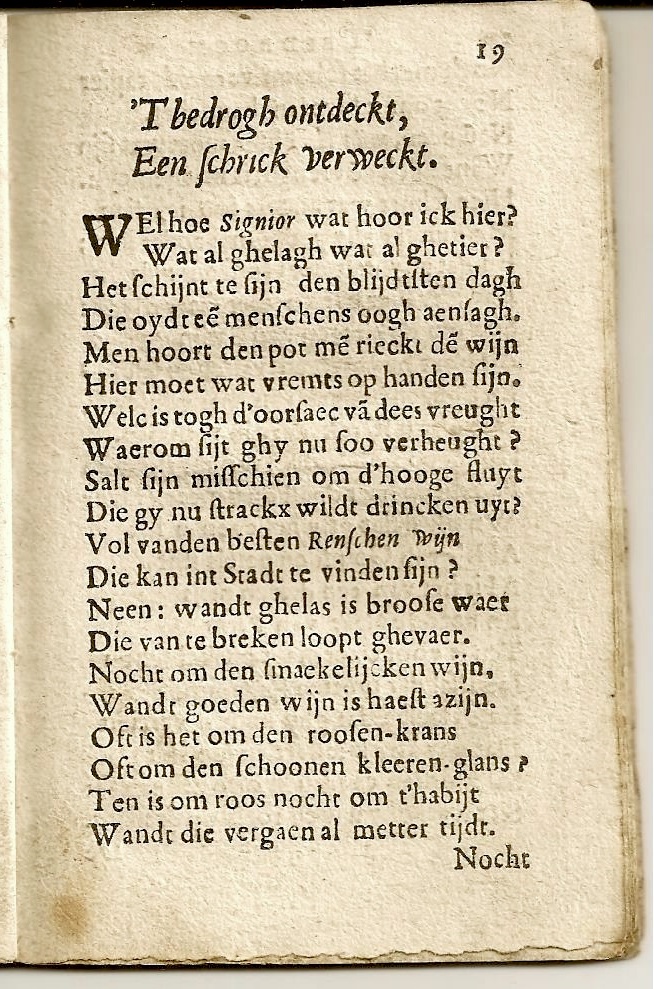 19
'T bedrogh ontdeckt,
Een ſchrick verweckt.
WEl hoe Signior wat hoor ick hier?
Wat al ghelagh wat al ghetier?
Het ſchijnt te ſijn den blijdtſten dagh
Die oydt eẽ menſchens oogh aenſagh.
Men hoort den pot mẽ rieckt dẽ wijn
Hier moet wat vremts op handen ſijn.
Welc is togh d'oorſaec vã dees vreught
Waerom ſijt ghy nu ſoo verheught?
Salt ſijn miſſchien om d'hooge fluyt
Die gy nu ſtrackx wildt drincken uyt?
Vol vanden beſten Renſchen wijn
Die kan int Stadt te vinden ſijn?
Neen: wandt ghelas is brooſe waer
Die van te breken loopt ghevaer.
Nocht om den ſmaekelijcken wijn,
Wandt goeden wijn is haeſt azijn.
Oft is het om den rooſen-krans
Oft om den ſchoonen kleeren-glans?
Ten is om roos nocht om t'habijt
Wandt die vergaen al metter tijdt.
Nocht